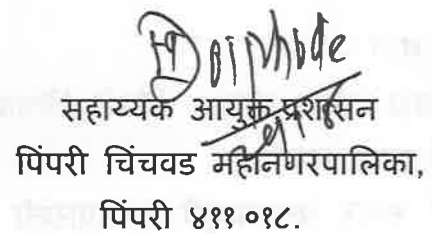 सहाय्यक आयुक्त प्रशासन
पिंपरी चिंचवड महानगरपालिका,
पिंपरी ४११ ०१८.